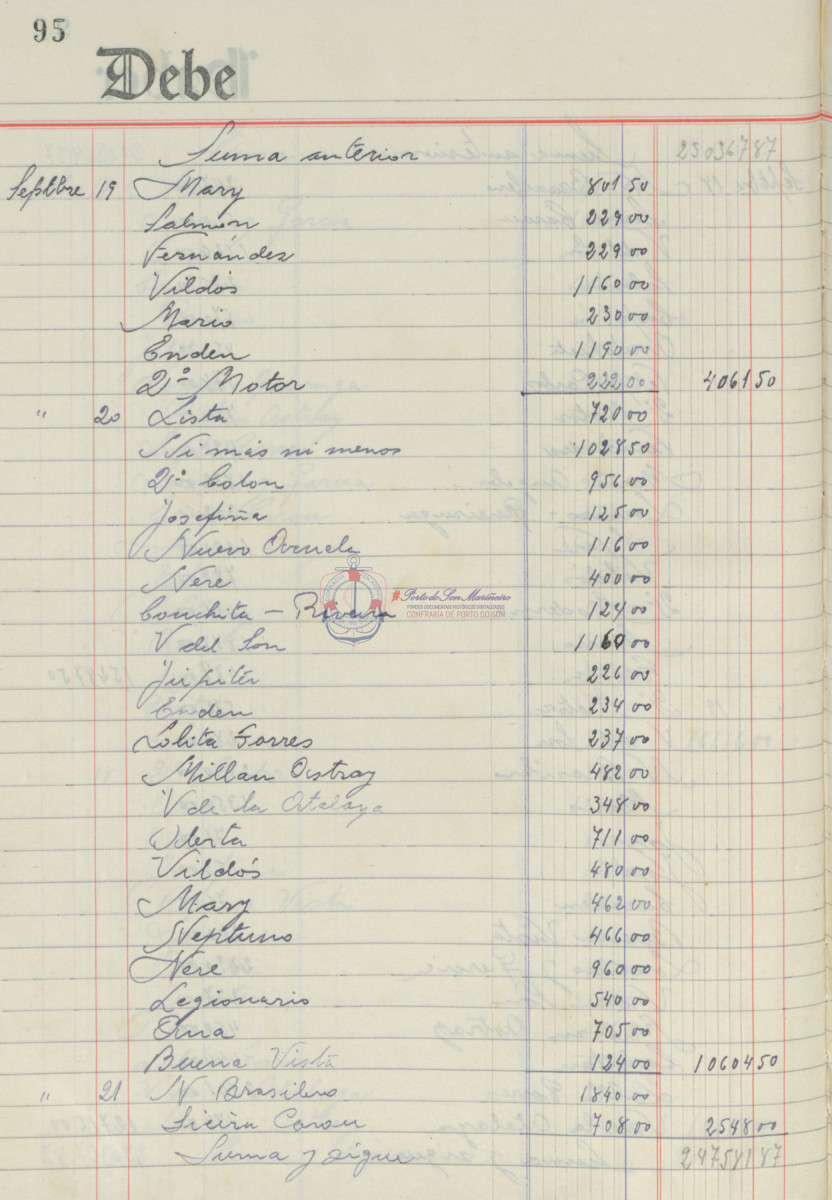 95
Debe
Suma anterior 230367 87
Septbre 19 Mary 801 50
Salmón 229 00
Fernández 229 00
Vildós 1160 00
Mario 230 00
Enden 1190 00
2º Motor 222 00 4061 50
" 20 Lista 720 00
Ni más ni menos 1028 50
2º Colon 956 00
Josefiña 125 00
Nuevo 116 00
Nere 400 00
Conchita - Riveira 124 00
V del Son 1160 00
Jupiter 226 00
Enden 234 00
Lolita Torres 237 00
Millan Astray 482 00
V de la Atalaya 348 00
711 00
Vildós 480 00
Mary 462 00
Neptuno 466 00
Nere 960 00
Legionario 540 00
705 00
Buena Vista 124 00 10604 50
" 21 N Brasileno 1840 00
Sieira 708 00 2548 00
Suma y sigue 247581 87
#PortodoSonMariñeiro
FONDOS DOCUMENTAIS HISTÓRICOS DIXITALIZADOS
CONFRARÍA DE PORTO DO SON